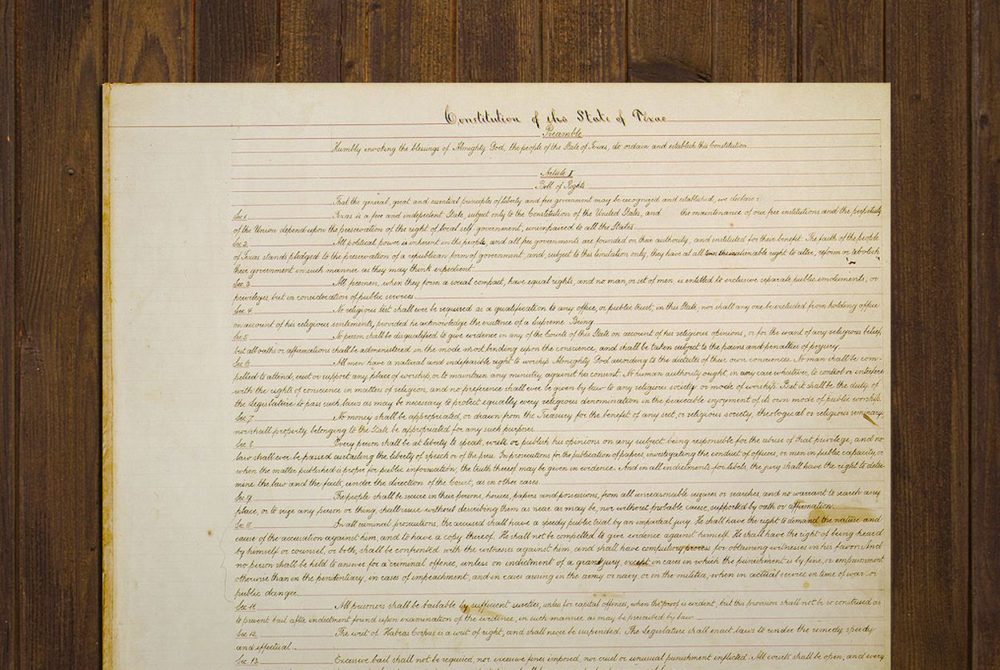 Constitution of the State of Texas
Preamble
Humbly invoking the blessings of Almighty God, the people of the State of Texas, do ordain and establish this Constitution
Article I
Bill of Rights
That the general, great and essential principles of liberty and free government may be recognized and established, we declare:
Sec 1 Texas is a free and independent State, subject only to the Constitution of the United States, and the maintenance of our free institutions and the perpetuity
of the Union depend upon the preservation of the right of local self government, unimpaired to all the States.
Sec 2 All political power is inherent in the people, and all free governments are founded on their authority, and instituted for their benefit. The faith of the people
of Texas stands pledged to the preservation of a republican form of government, and, subject to this limitation only, they have at all inalienable right to alter, reform or abolish
their government in such manner as they may think expedient
Sec 3 All freemen, when they form a social compact, have equal rights, and no man, or set of men is entitled to exclusive separate public emoluments, or
privileges but in consideration of public services
Sec 4 No religious test shall ever be required as a qualification to any office, or public trust, in this State, nor shall any one be excluded from holding office
on account of his religious sentiments, provided he acknowledge the existence of a Supreme Being
Sec 5 No person shall be disqualified to give evidence in any of the Courts of this State on account of his religious opinions, or for the want of any religious belief,
but all oaths or affirmations shall be administered in the mode most binding upon the conscience, and shall be taken subject to the pains and penalties of perjury
Sec 6 All men have a natural and indefeasible right to worship Almighty God according to the dictates of their own consciences. No man shall be com-
pelled to attend, erect or support any place of worship, or to maintain any ministry against his consent. No human authority ought, in any case whatever, to control or interfere
with the rights of conscience in matters of religion, and no preference shall ever be given by law to any religious society or mode of worship. But it shall be the duty of
the Legislature to pass such laws as may be necessary to protect equally every religious denomination in the peaceable enjoyment of its own mode of public worship.
Sec. 7 No money shall be appropriated, or drawn from the Treasury for the benefit of any sect, or religious society, theological or religious seminary,
nor shall property belonging to the State be appropriated for any such purposes
Sec 8 Every person shall be at liberty to speak, write or publish his opinions on any subject being responsible for the abuse of that privilege, and no
law shall ever be passed curtailing the liberty of speech or of the press. In prosecutions for the publication of papers, investigating the conduct of officers, or men in public capacity, or
when the matter published is proper for public information, the truth thereof may be given in evidence. And in all indictments for libels, the jury shall have the right to deter-
mine the law and the facts, under the direction of the Court, as in other cases.
Sec. 9 The people shall be secure in their persons, houses, papers and possessions, from all unreasonable seizures or searches, and no warrant to search any
place, or to seize any person or thing, shall issue without describing them as near as may be, nor without probable cause, supported by oath or affirmation.
Sec 10 In all criminal prosecutions, the accused shall have a speedy public trial by an impartial jury. He shall have the right to demand the nature and
cause of the accusation against him, and to have a copy thereof. He shall not be compelled to give evidence against himself. He shall have the right of being heard
by himself or counsel, or both, shall be confronted with the witnesses against him, and shall have compulsory process for obtaining witnesses in his favor. And
no person shall be held to answer for a criminal offense, unless on indictment of a grand jury, except in cases in which the punishment is by fine, or imprisonment
otherwise than in the penitentiary, in cases of impeachment, and in cases arising in the army or navy, or in the militia, when in actual service in time of war or
public danger.
Sec 11 All prisoners shall be bailable by sufficient sureties, unless for capital offences, when the proof is evident, but this provision shall not be so construed as
to prevent bail after indictment found upon examination of the evidence, in such manner as may be prescribed by law
Sec 12. The writ of Habeas Corpus is a writ of right, and shall never be suspended. The Legislature shall enact laws to render the remedy speedy
and effectual.
Sec 13 Excessive bail shall not be required, nor excessive fines imposed, nor cruel or unusual punishment inflicted. All courts shall be open, and every